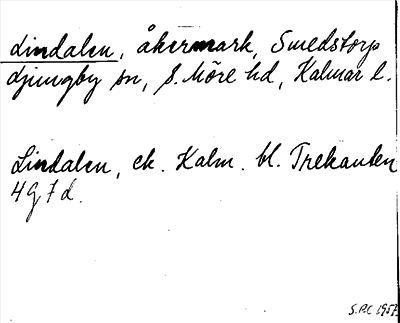 Lindalen, åkermark, Smedstorp
Ljungby sn, S. Möre hd, Kalmar l.
Lindalen, ek. Kalm. bl. Trekanten
4 g 7 d.
S.R.C 1957